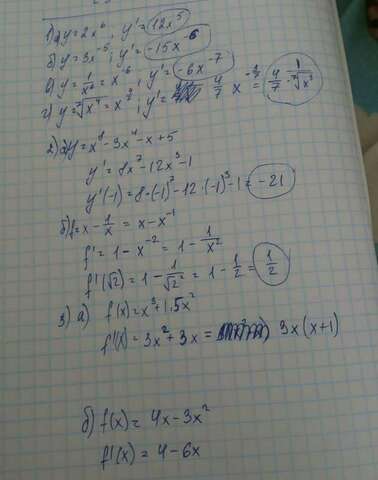 1) a) y = 2x⁶, y' = 12x⁵
б) y = 3x⁻⁵, y' = -15x⁻⁶
в) y = 1/x⁶ = x⁻⁶, y' = -6x⁻⁷
г) y = ⁷√x⁴ = x^(4/7), y' = 4/7 x^(-3/7) = 4/7 · 1/⁷√x³
2) a) y = x⁸ - 3x⁴ - x + 5
y' = 8x⁷ - 12x³ - 1
y'(-1) = 8·(-1)⁷ - 12·(-1)³ - 1 = -21
б) f = x - 1/x = x - x⁻¹
f' = 1 - x⁻² = 1 - 1/x²
f'(√2) = 1 - 1/√2² = 1 - 1/2 = 1/2
3) a) f(x) = x³ + 1,5x²
f'(x) = 3x² + 3x = 3x(x+1)
б) f(x) = 4x - 3x²
f'(x) = 4 - 6x